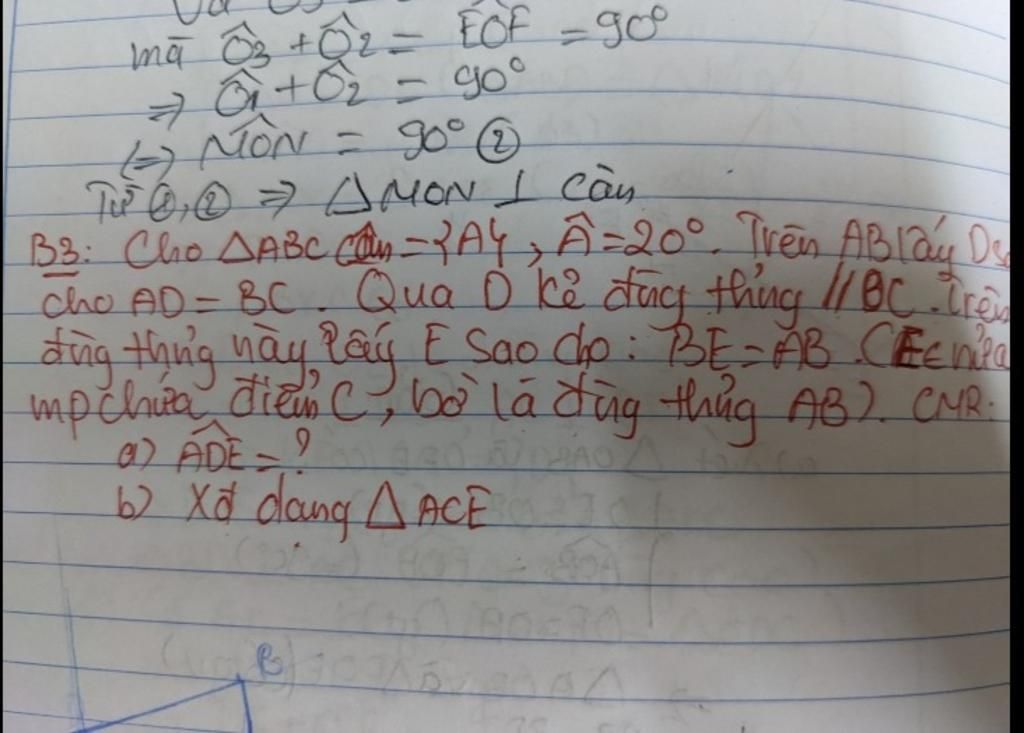 mà Ô3 + Ô2 = EÔF = 90°
=> Ô1 + Ô2 = 90°
(=) MÔN = 90° ②
Từ ①, ② => △MON ⊥ cân
B3: Cho △ABC cân = {A}, Â = 20°. Trên AB lấy D
cho AD = BC. Qua D kẻ đừng thủng // BC. Trên
đừng thủng này, lấy E sao cho: BE = AB. (E ∈ nửa
mp chứa điểm C, bờ là đừng thủng AB). CMR:
a) ADE = ?
b) Xđ dạng △ACE
B